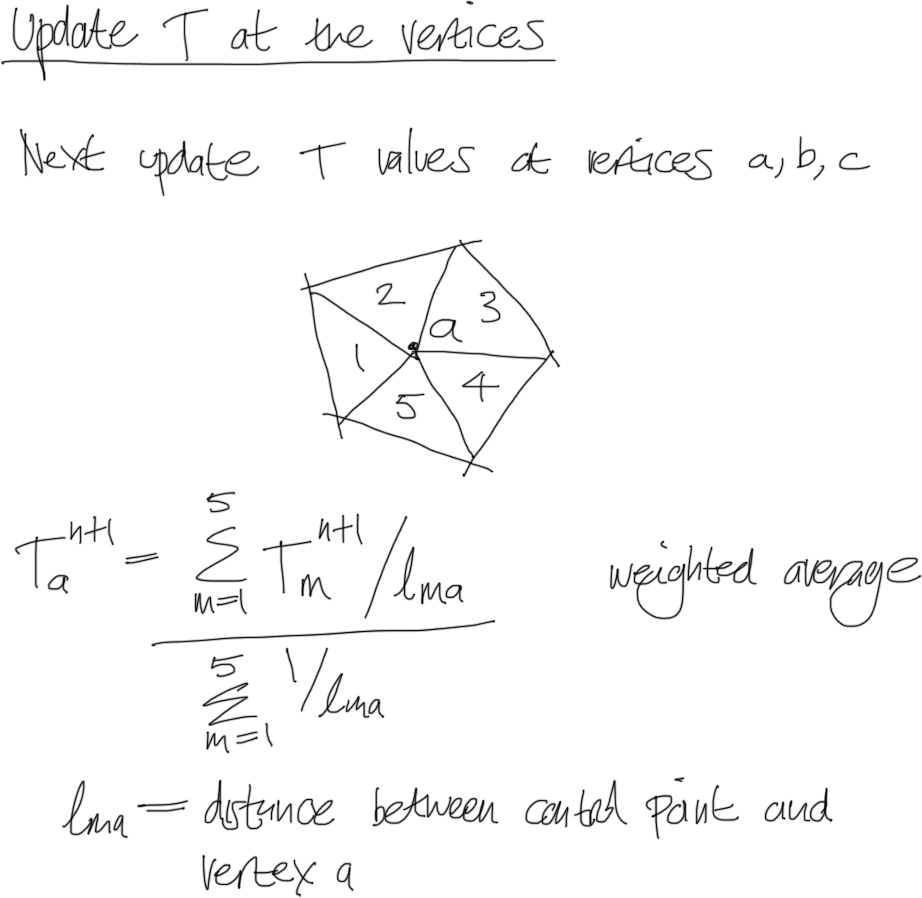 Update T at the vertices
Next update T values at vertices a, b, c
2
3
a
1
4
5
T_a^{n+1} = \frac{\sum_{m=1}^{5} T_m^{n+1} / l_{ma}}{\sum_{m=1}^{5} 1 / l_{ma}} weighted average
l_{ma} = distance between control point and
vertex a